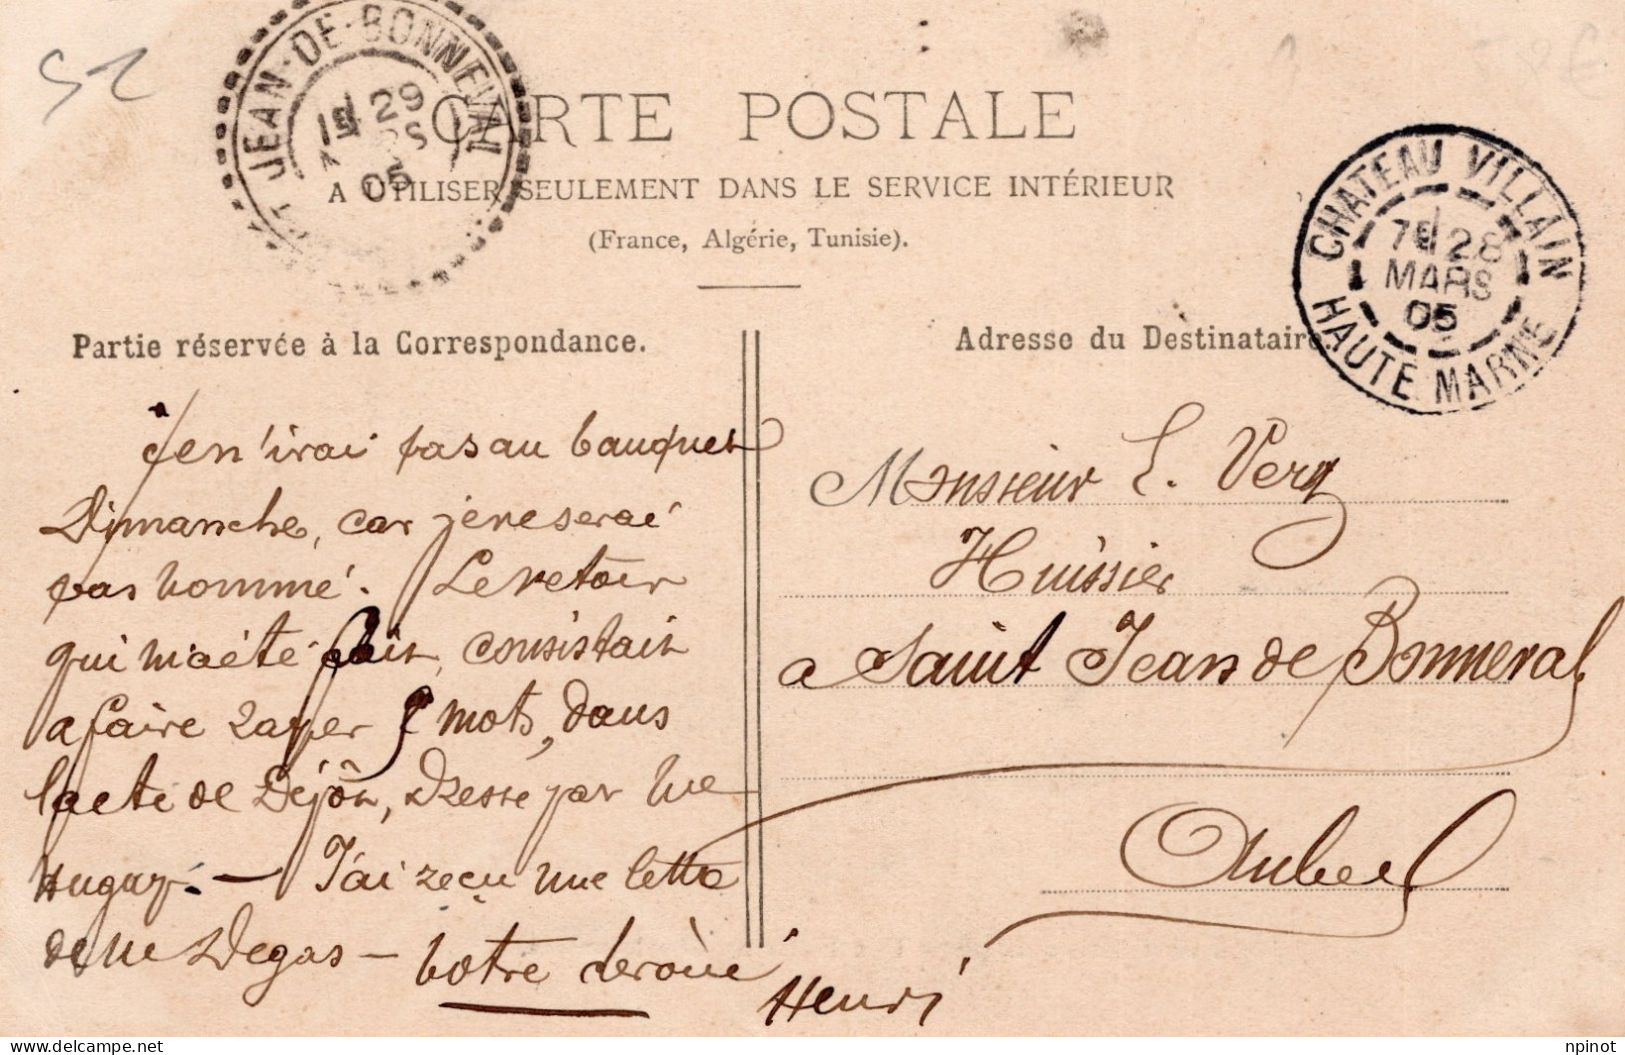 52
JEAN-DE-BONNEVAL
1E 29
05
CARTE POSTALE
A UTILISER SEULEMENT DANS LE SERVICE INTÉRIEUR
(France, Algérie, Tunisie).
CHATEAU VILLAIN
7E 28
MARS
05
HAUTE MARNE
Partie réservée à la Correspondance.
Je n'irai pas au banquet
Dimanche, car je ne serai
pas nommé. Le retour
qui m'a été fait, consistait
a faire rayer 2 mots, dans
l'acte de Déjôn, Dressé par Me
Huguy. — J'ai reçu une lettre
de Me Degas — Votre deroüé
Henri
Adresse du Destinataire.
Monsieur E. Very
Huissier
a Saint Jean de Bonneval
Aube
Delcampe.net
npinot